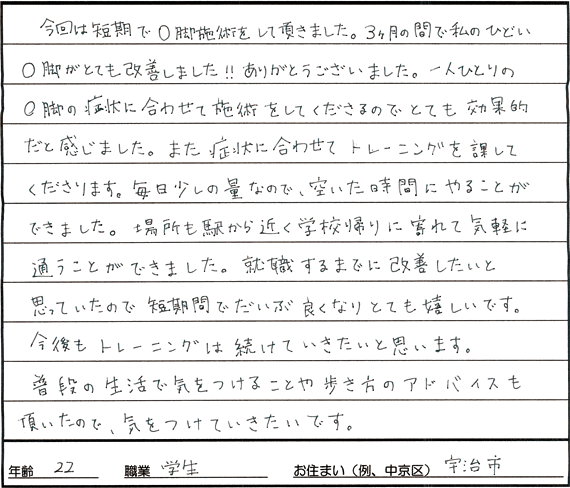 今回は短期でO脚施術をして頂きました。3ヶ月の間で私のひどい
O脚がとても改善しました!!ありがとうございました。一人ひとりの
O脚の症状に合わせて施術をしてくださるのでとても効果的
だと感じました。また症状に合わせてトレーニングを課して
くださります。毎日少しの量なので、空いた時間にやることが
できました。場所も駅から近く学校帰りに寄れて気軽に
通うことができました。就職するまでに改善したいと
思っていたので短期間でだいぶ良くなりとても嬉しいです。
今後もトレーニングは続けていきたいと思います。
普段の生活で気をつけることや歩き方のアドバイスも
頂いたので、気をつけていきたいです。
年齢 22 職業 学生 お住まい（例、中京区） 宇治市